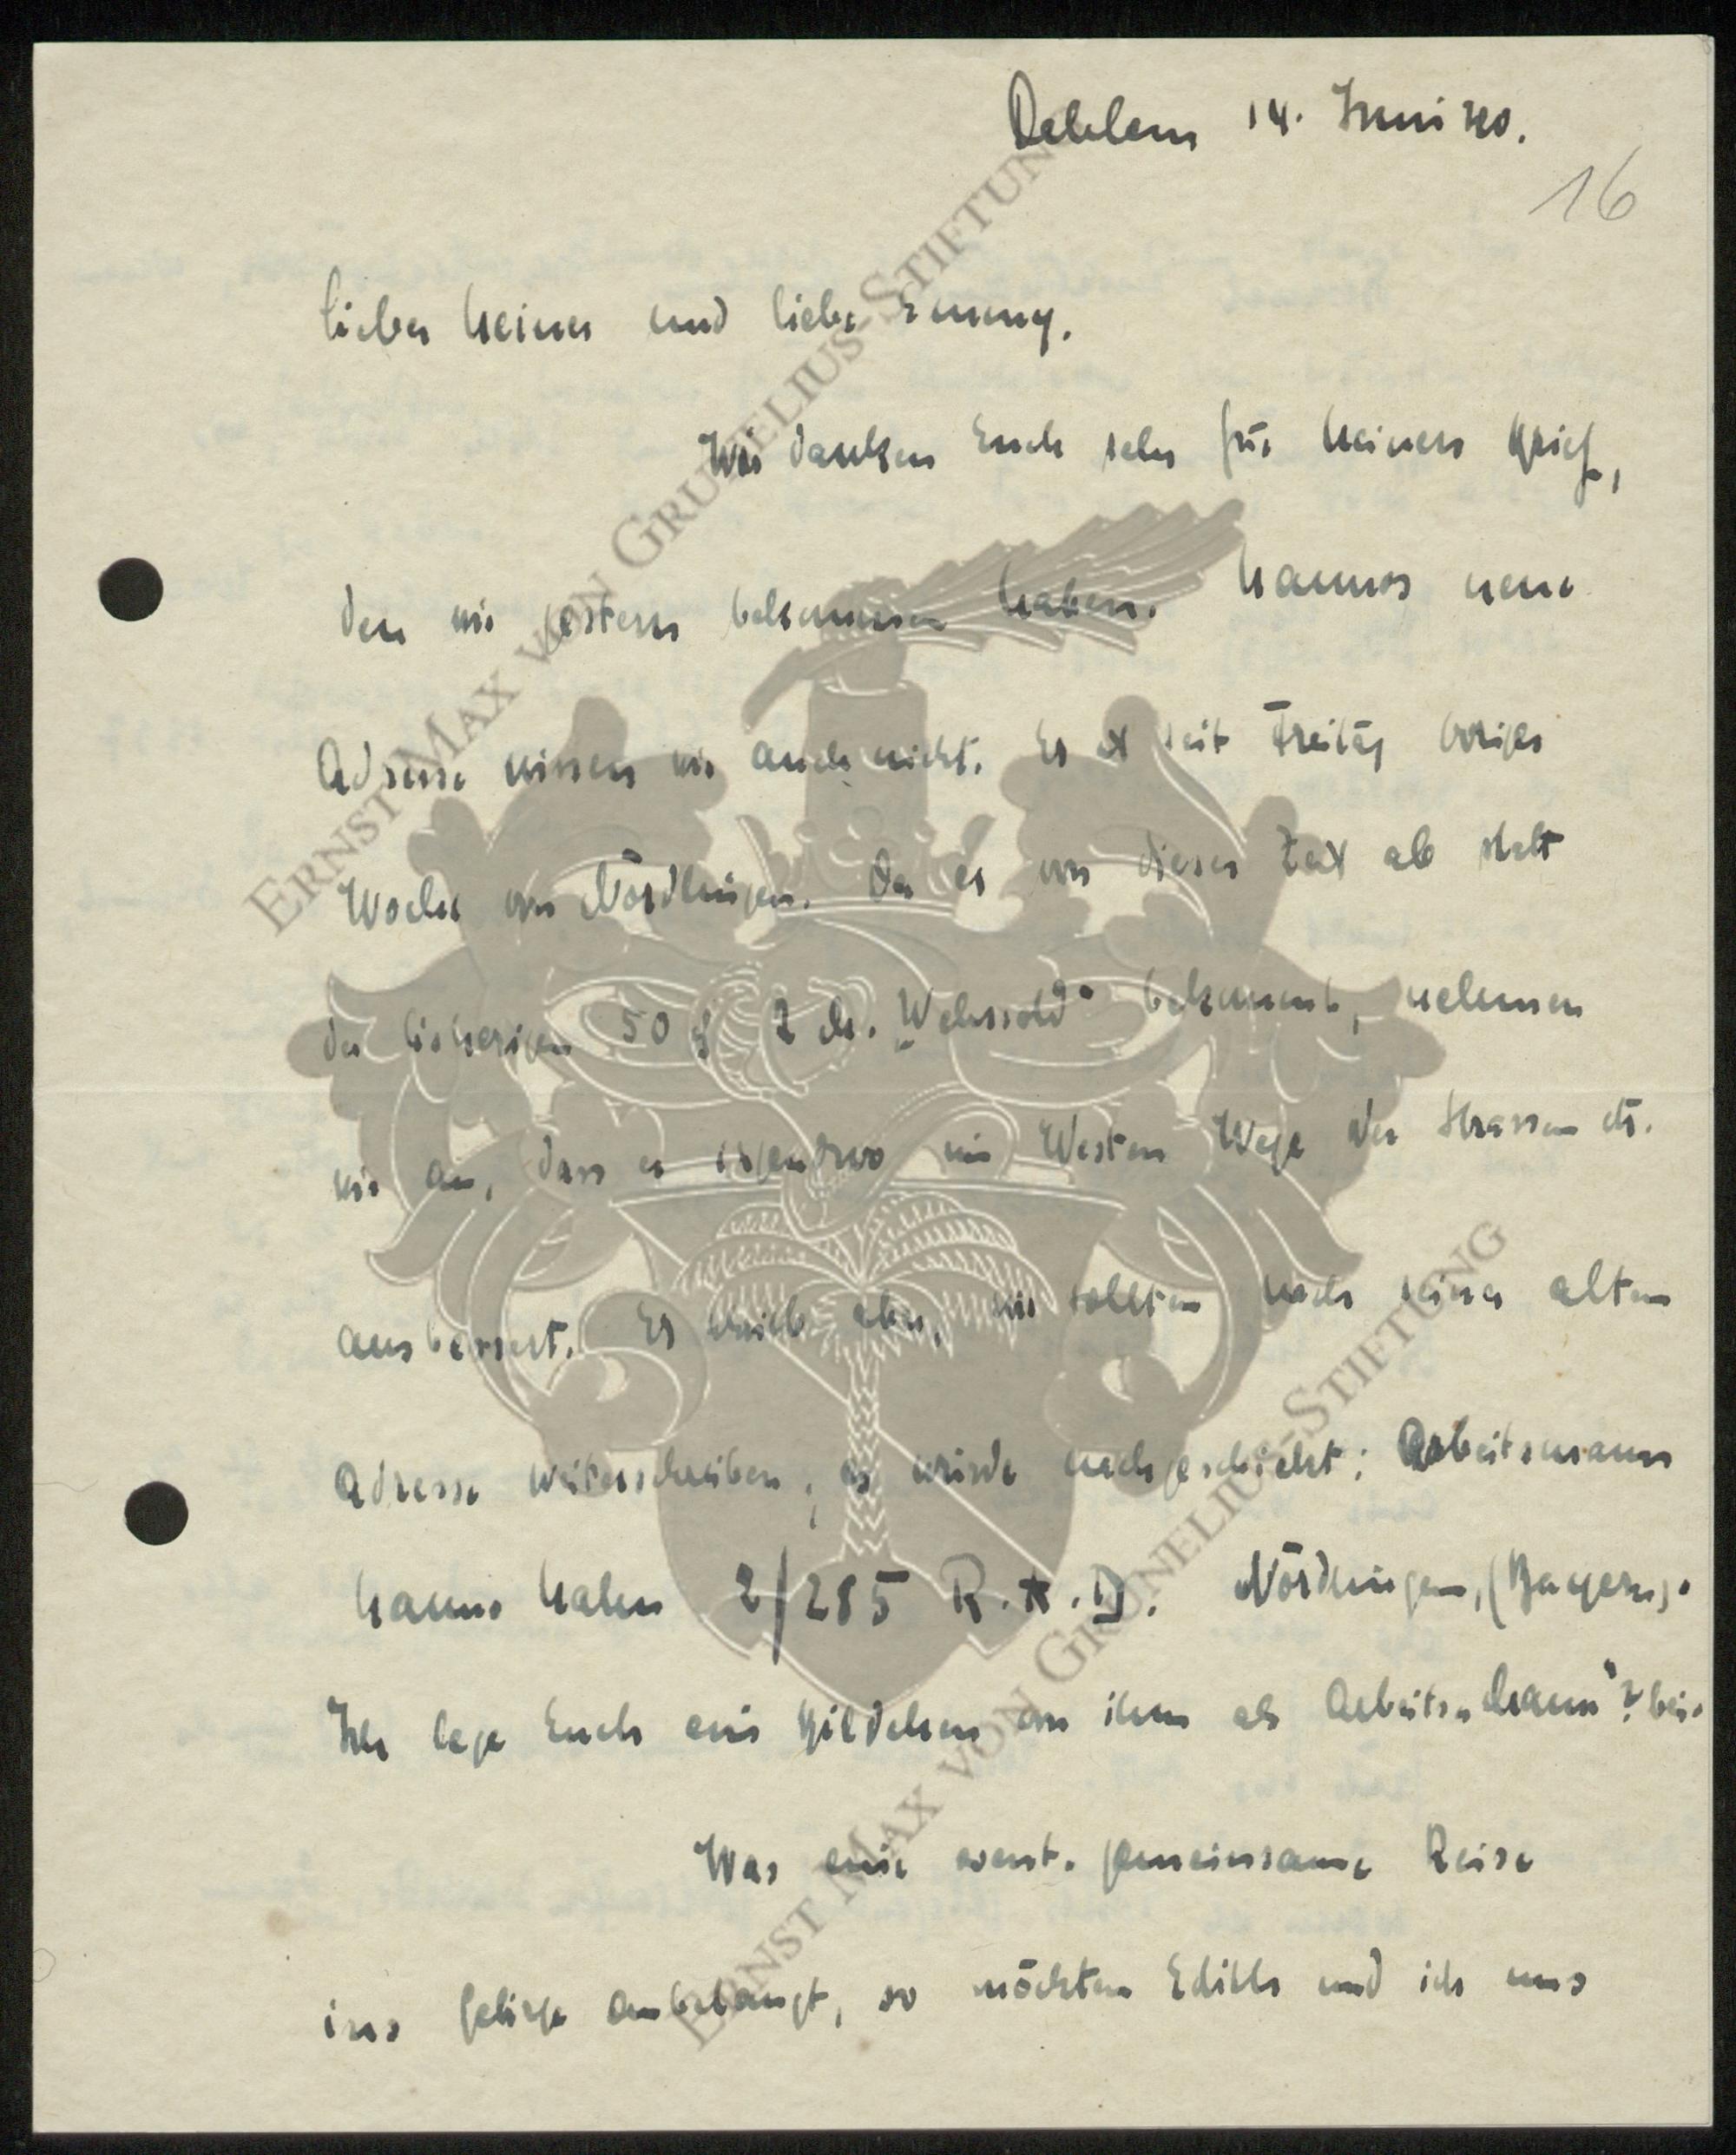 Dahlem 14. Juni 40.
16
Lieber Heiner und liebe Emmy.
Wir danken Euch sehr für Heiners Brief,
den wir gestern bekommen haben. Hannos neue
Adresse wissen wir auch nicht. Er ist seit Freitag voriger
Woche von Nördlingen. Da er von dieser Zeit ab statt
der bisherigen 50 ₰ 2 M. „Wehrsold" bekommt, nehmen
wir an, dass er irgendwo im Westen Wege oder Strassen etc.
ausbessert. Er schrieb aber, wir sollten nach seiner alten
Adresse weiterschreiben, es würde nachgeschickt: Arbeitsmann
Hanno Hahn 2/285 R.A.D. Nördlingen, (Bayern).
Ich lege Euch ein Bildchen von ihm als Arbeits„mann"? bei.
Was eine event. gemeinsame Reise
ins Gebirge anbelangt, so möchten Edith und ich uns
ERNST MAX VON GRUNELIUS-STIFTUNG
ERNST MAX VON GRUNELIUS-STIFTUNG